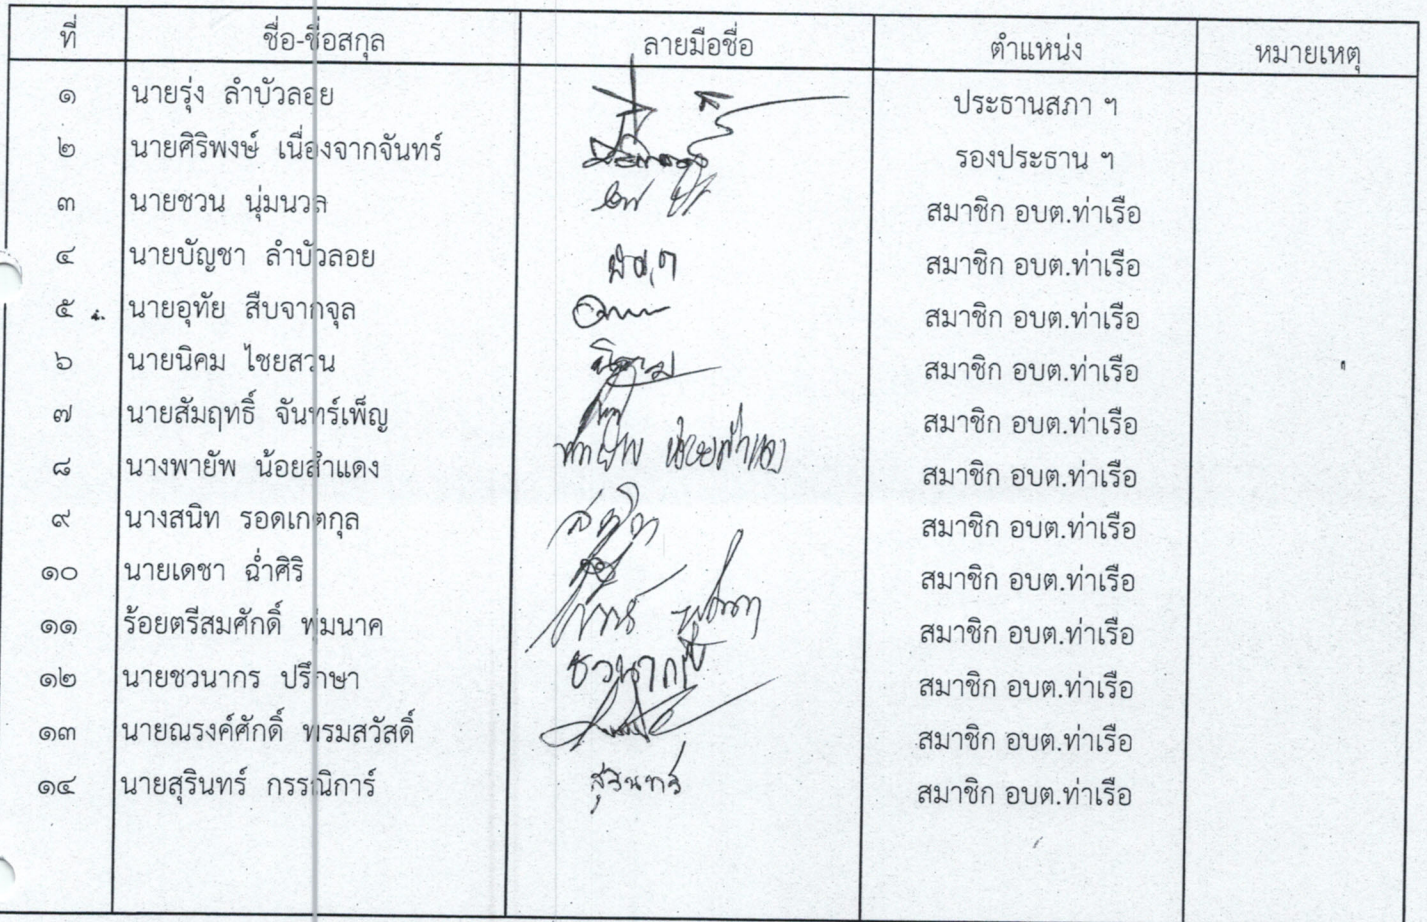 ที่ ชื่อ-ชื่อสกุล ลายมือชื่อ ตำแหน่ง หมายเหตุ
๑ นายรุ่ง ลำบัวลอย ประธานสภา ฯ
๒ นายศิริพงษ์ เนื่องจากจันทร์ รองประธาน ฯ
๓ นายชวน นุ่มนวล สมาชิก อบต.ท่าเรือ
๔ นายบัญชา ลำบัวลอย สมาชิก อบต.ท่าเรือ
๕ นายอุทัย สืบจากจุล สมาชิก อบต.ท่าเรือ
๖ นายนิคม ไชยสวน นิคม สมาชิก อบต.ท่าเรือ
๗ นายสัมฤทธิ์ จันทร์เพ็ญ สมาชิก อบต.ท่าเรือ
๘ นางพายัพ น้อยสำแดง พายัพ น้อยสำแดง สมาชิก อบต.ท่าเรือ
๙ นางสนิท รอดเกตกุล สมาชิก อบต.ท่าเรือ
๑๐ นายเดชา ฉ่ำศิริ สมาชิก อบต.ท่าเรือ
๑๑ ร้อยตรีสมศักดิ์ พุ่มนาค สมาชิก อบต.ท่าเรือ
๑๒ นายชวนากร ปรึกษา ชวนากร สมาชิก อบต.ท่าเรือ
๑๓ นายณรงค์ศักดิ์ พรมสวัสดิ์ สมาชิก อบต.ท่าเรือ
๑๔ นายสุรินทร์ กรรณิการ์ สุรินทร์ สมาชิก อบต.ท่าเรือ